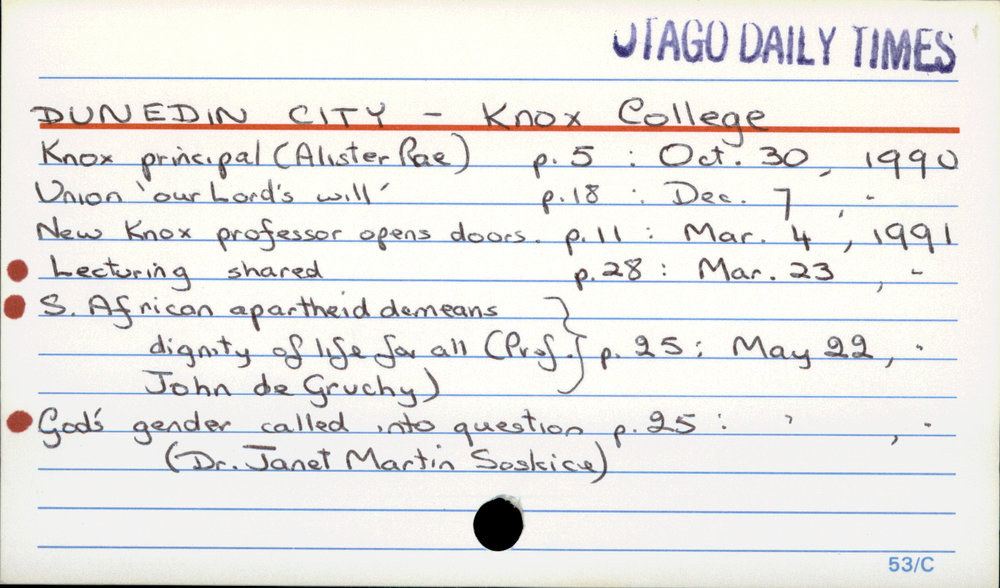 OTAGO DAILY TIMES
DUNEDIN CITY - Knox College
Knox principal (Alister Rae) p. 5 : Oct. 30, 1990
Union 'our Lord's will' p.18 : Dec. 7, "
New Knox professor opens doors. p. 11 : Mar. 4, 1991
Lecturing shared p. 28 : Mar. 23, "
S. African apartheid demeans
dignity of life for all (Prof. p. 25 : May 22, "
John de Gruchy)
God's gender called into question p. 25 : " , "
(Dr. Janet Martin Soskice)
53/C